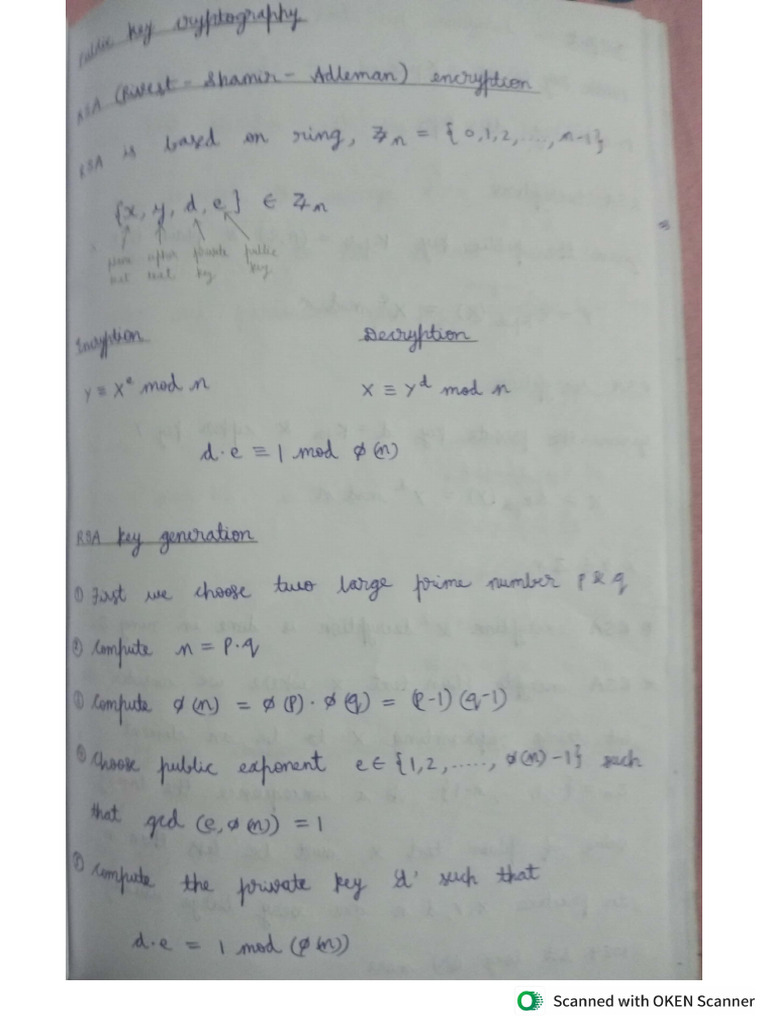 Public key cryptography
RSA (Rivest - Shamir - Adleman) encryption
RSA is based on ring, Zn = {0,1,2, ..., n-1}
{x, y, d, e} ∈ Zn
plain cipher private public
text text key key
Encryption Decryption
y ≡ x^e mod n x ≡ y^d mod n
d·e ≡ 1 mod ø(n)
RSA key generation
① First we choose two large prime number p & q
② Compute n = p·q
③ Compute ø(n) = ø(p)·ø(q) = (p-1)(q-1)
④ Choose public exponent e ∈ {1,2, ....., ø(n)-1} such
that gcd (e, ø(n)) = 1
⑤ Compute the private key 'd' such that
d·e = 1 mod (ø(n))
Scanned with OKEN Scanner